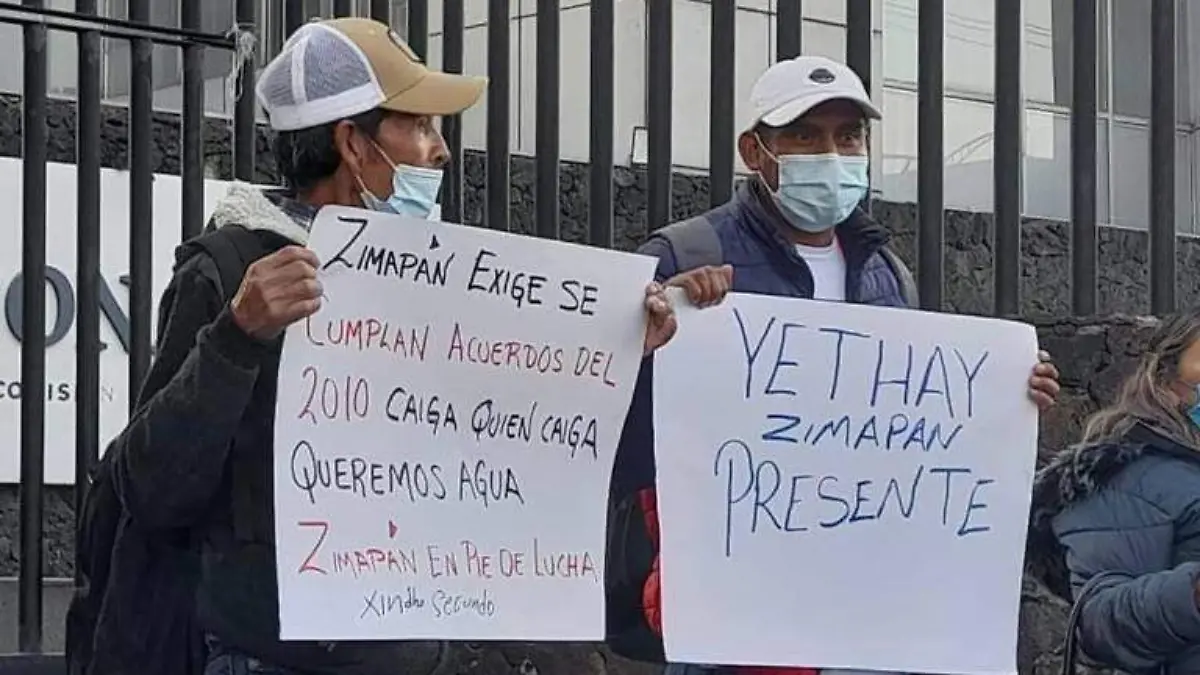 ZIMAPÁN EXIGE SE
CUMPLAN ACUERDOS DEL
2010 CAIGA QUIEN CAIGA
QUEREMOS AGUA
ZIMAPÁN EN PIE DE LUCHA
XINdho SEGUNDO
YETHAY
ZIMAPAN
PRESENTE